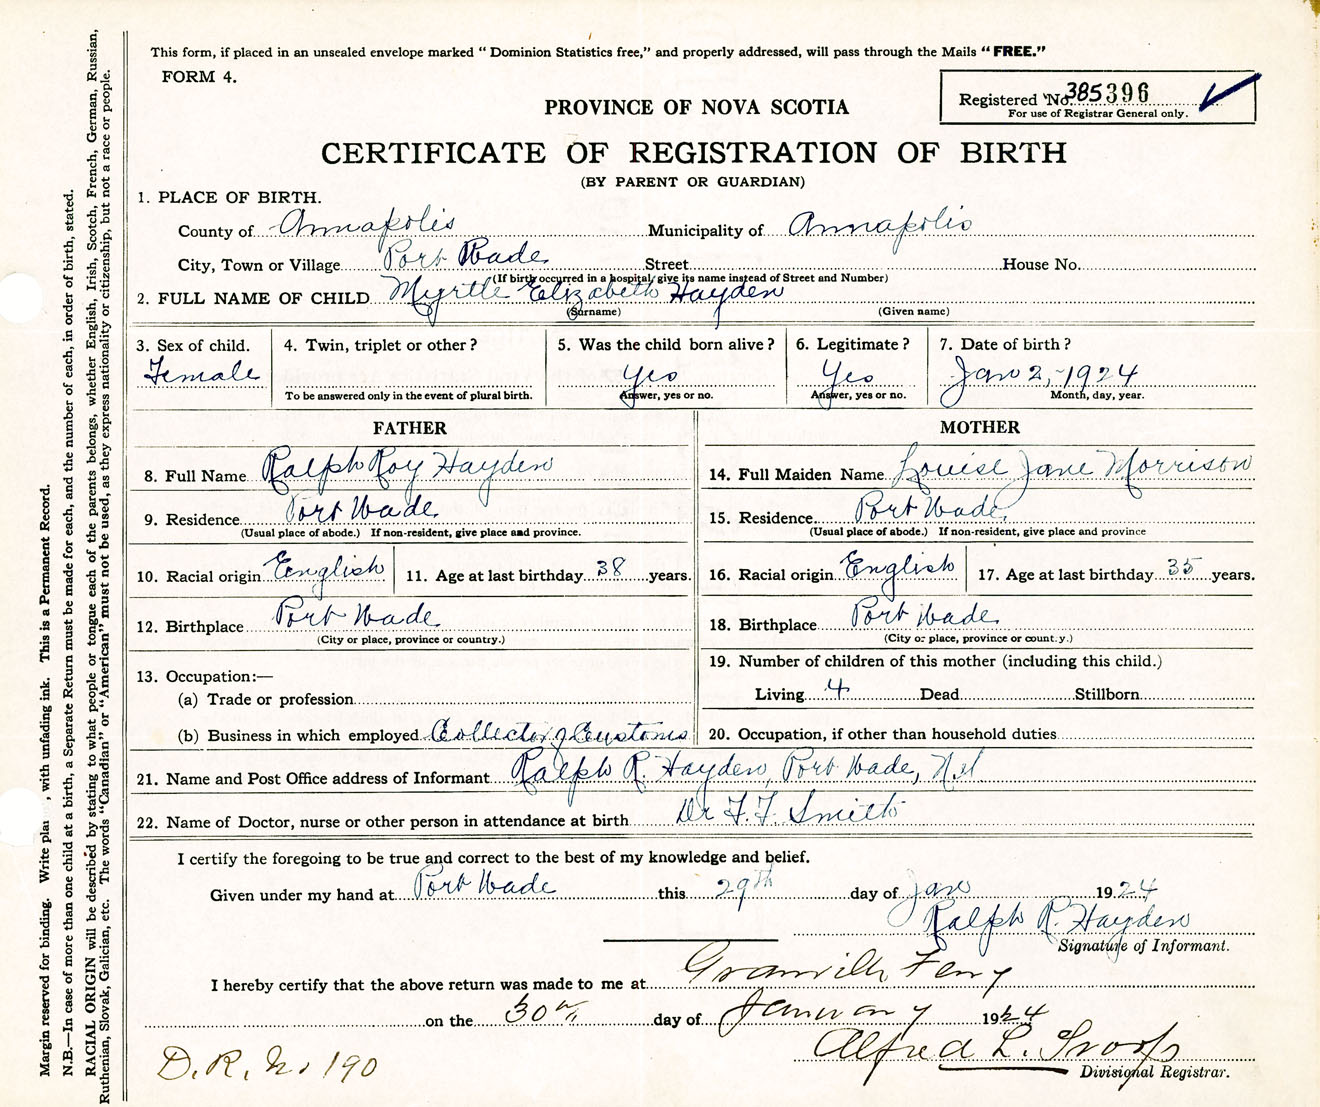 This form, if placed in an unsealed envelope marked “ Dominion Statistics free,” and properly addressed, will pass through the Mails “ FREE.”
FORM 4.
Registered No. 385396
For use of Registrar General only.
PROVINCE OF NOVA SCOTIA
CERTIFICATE OF REGISTRATION OF BIRTH
(BY PARENT OR GUARDIAN)
1. PLACE OF BIRTH.
County of Annapolis Municipality of Annapolis
City, Town or Village Port Wade Street House No.
(If birth occurred in a hospital, give its name instead of Street and Number)
2. FULL NAME OF CHILD Myrtle Elizabeth Hayden
(Surname) (Given name)
3. Sex of child. 4. Twin, triplet or other ? 5. Was the child born alive ? 6. Legitimate ? 7. Date of birth ?
Female Yes Yes Jan 2, 1924
To be answered only in the event of plural birth. Answer, yes or no. Answer, yes or no. Month, day, year.
FATHER MOTHER
8. Full Name Ralph Roy Hayden 14. Full Maiden Name Louise Jane Morrison
9. Residence Port Wade 15. Residence Port Wade
(Usual place of abode.) If non-resident, give place and province. (Usual place of abode.) If non-resident, give place and province
10. Racial origin English 11. Age at last birthday 38 years. 16. Racial origin English 17. Age at last birthday 35 years.
12. Birthplace Port Wade 18. Birthplace Port Wade
(City or place, province or country.) (City or place, province or county.)
19. Number of children of this mother (including this child.)
13. Occupation:—
(a) Trade or profession Living 4 Dead Stillborn
(b) Business in which employed Collector of Customs 20. Occupation, if other than household duties
21. Name and Post Office address of Informant Ralph R. Hayden, Port Wade, N.S
22. Name of Doctor, nurse or other person in attendance at birth Dr F. F. Smith
I certify the foregoing to be true and correct to the best of my knowledge and belief.
Given under my hand at Port Wade this 29th day of Jan 1924
Ralph R. Hayden
Signature of Informant.
I hereby certify that the above return was made to me at Granville Ferry
on the 30th day of January 1924
Alfred L. Troop
Divisional Registrar.
D. R. No 190
Margin reserved for binding. Write , with unfading ink. This is a Permanent Record.
N.B.—In case of more than one child at a birth, a Separate Return must be made for each, and the number of each, in order of birth, stated.
RACIAL ORIGIN will be described by stating to what people or tongue each of the parents belongs, whether English, Irish, Scotch, French, German, Russian,
Ruthenian, Slovak, Galician, etc. The words “Canadian” or “American” must not be used, as they express nationality or citizenship, but not a race or people.